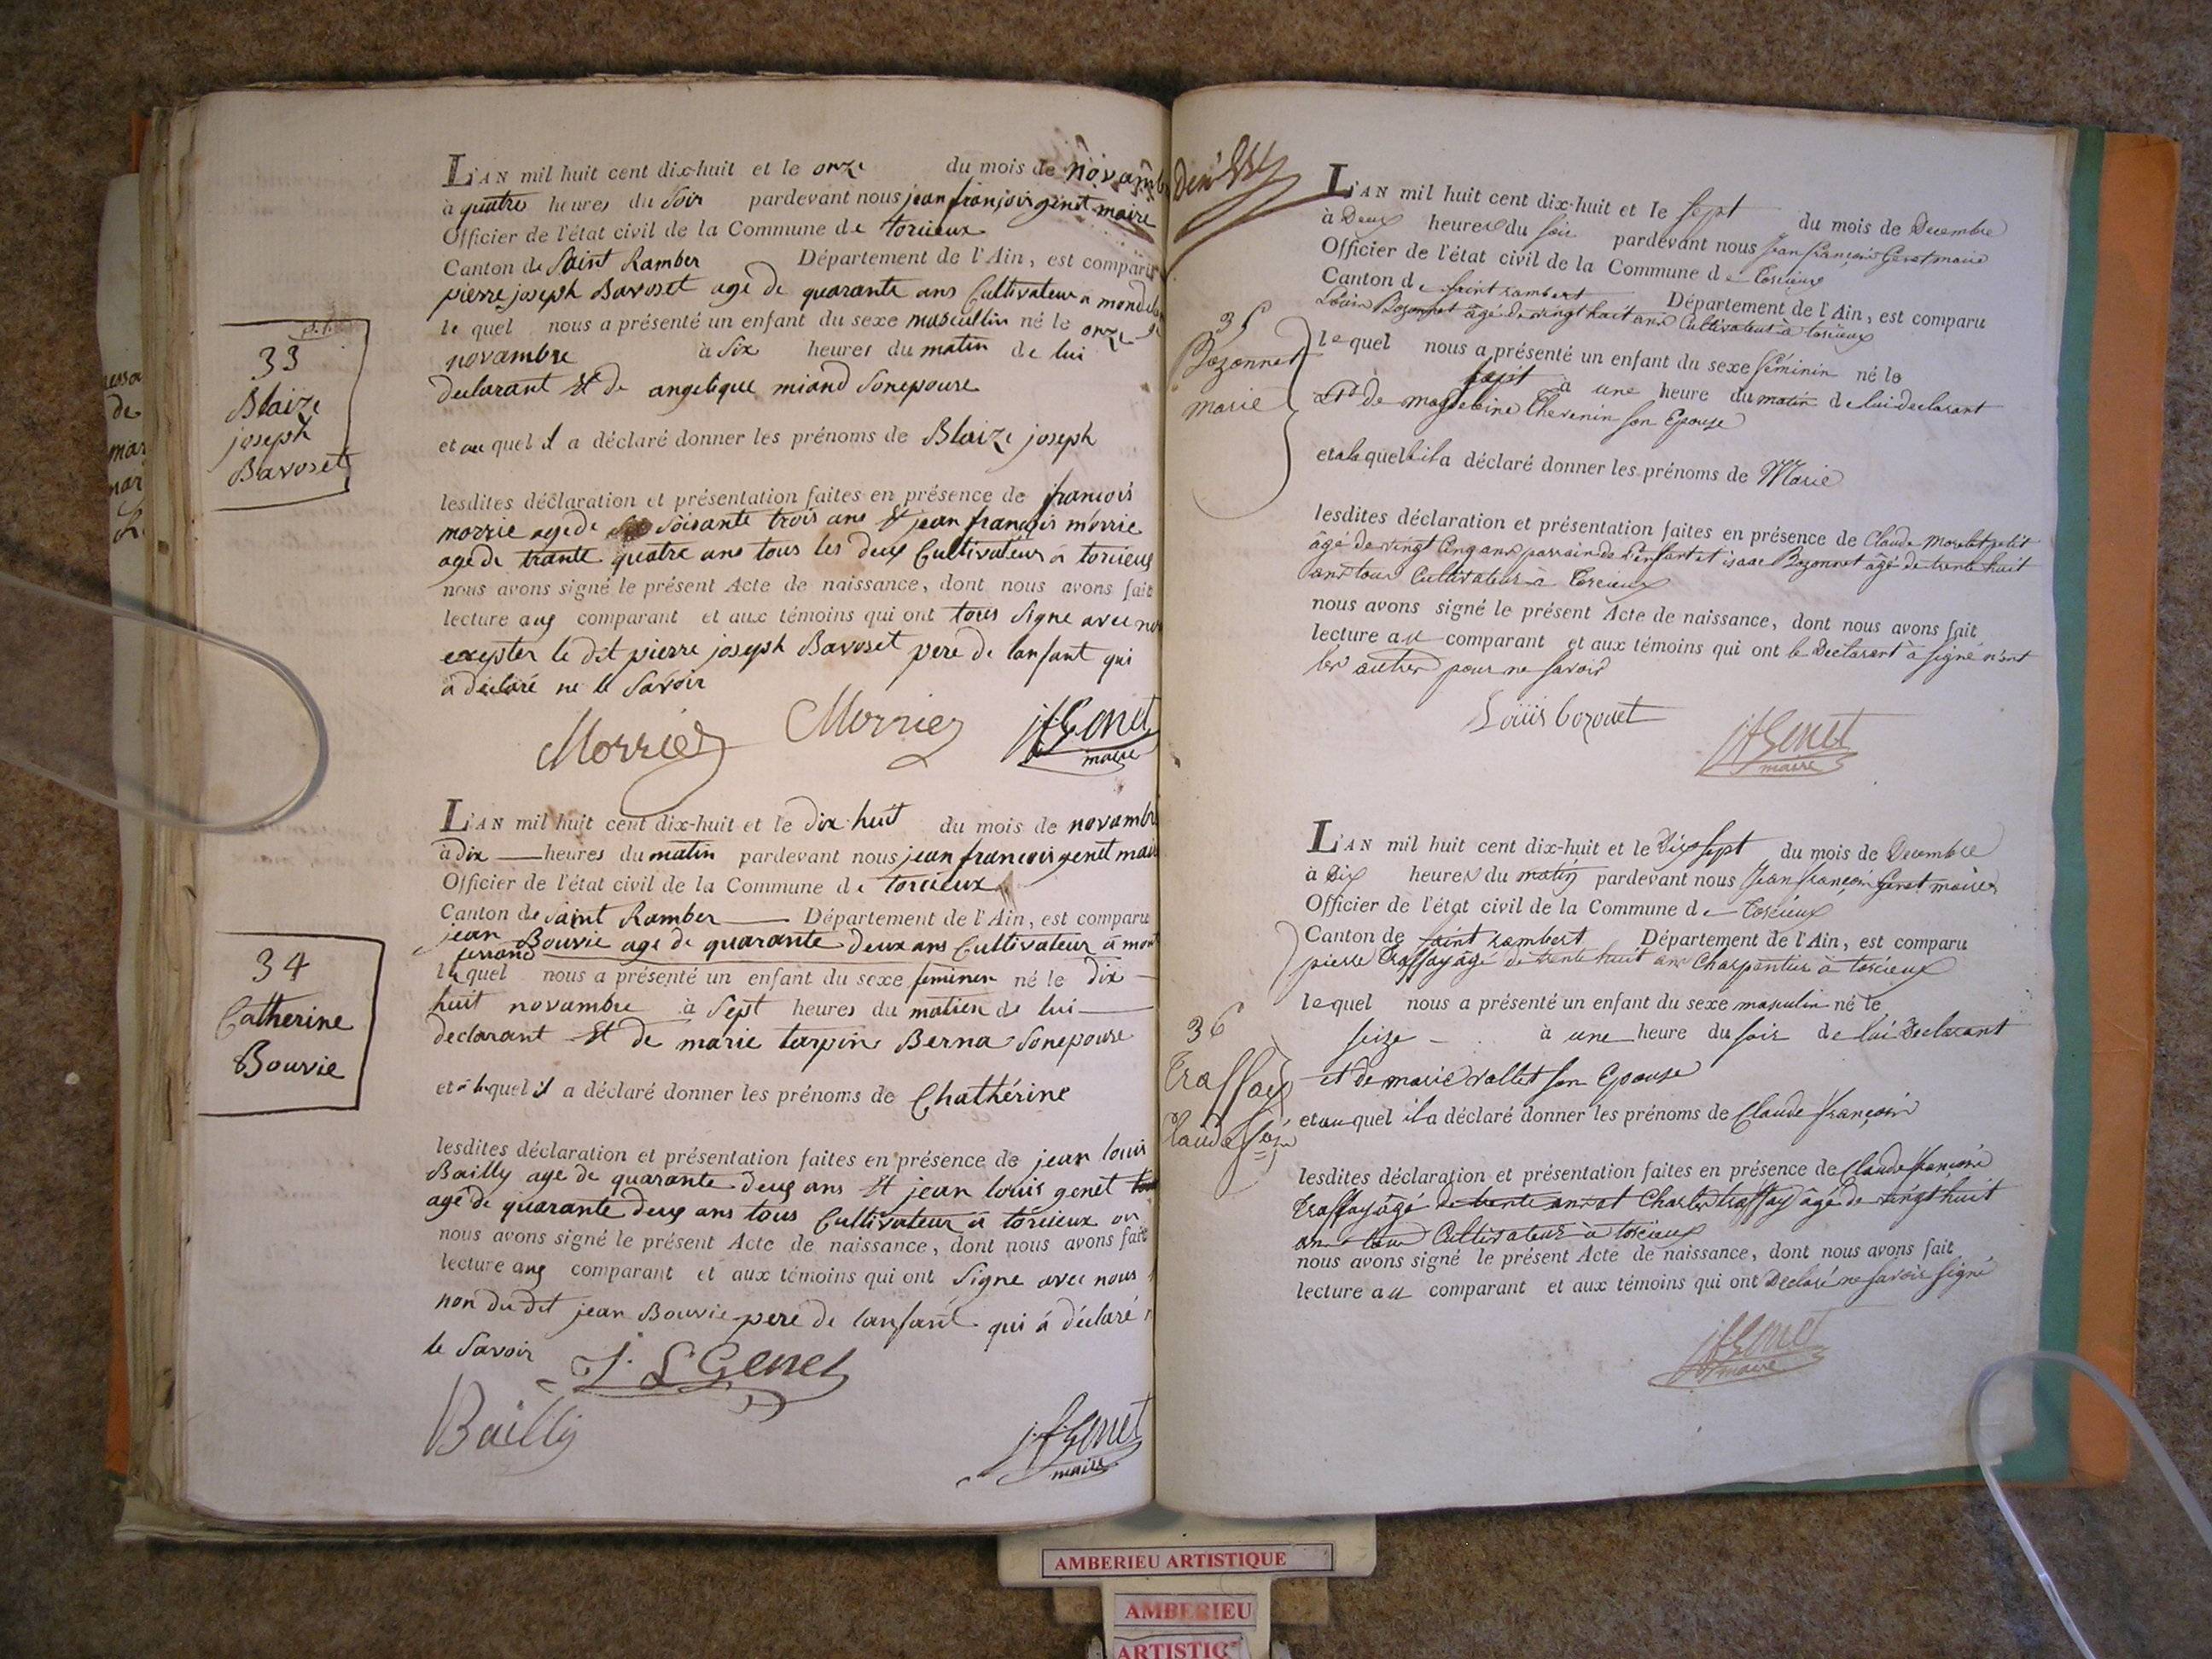 L'AN mil huit cent dix-huit et le onze du mois de novambre
à quatre heures du soir pardevant nous jean françois genet maire
Officier de l'état civil de la Commune de torcieux
Canton de Saint Ramber Département de l'Ain, est comparu
pierre joseph Bavoset age de quarante ans Cultivateur a
le quel nous a présenté un enfant du sexe mascullin né le onze
novambre à six heures du matin de lui
declarant Et de angelique miand son epouse
et au quel il a déclaré donner les prénoms de Blaize joseph
lesdites déclaration et présentation faites en présence de francois
morrie age de soisante trois ans Et jean françois morrie
age de trante quatre ans tous les deux Cultivateur a torcieux
nous avons signé le présent Acte de naissance, dont nous avons fait
lecture aux comparant et aux témoins qui ont tous signe avec nous
excepter le dit pierre joseph Bavoset pere de lanfant qui
a déclaré ne le savoir
Morrier Morrier jf Genet
maire
33
Blaize
joseph
Bavoset
L'AN mil huit cent dix-huit et le dix huit du mois de novambre
à dix heures du matin pardevant nous jean francois genet maire
Officier de l'état civil de la Commune de torcieux
Canton de saint Ramber Département de l'Ain, est comparu
jean Bouvie age de quarante deux ans Cultivateur a mont
ferrand
la quel nous a présenté un enfant du sexe feminen né le dix
huit novambre à sept heures du matien de lui
declarant Et de marie tarpin Berna son epouse
et a la quel il a déclaré donner les prénoms de Chathérine
lesdites déclaration et présentation faites en présence de jean louis
Bailly age de quarante deux ans Et jean louis genet
age de quarante deux ans tous Cultivateur a torcieux
nous avons signé le présent Acte de naissance, dont nous avons fait
lecture aux comparant et aux témoins qui ont signe avec nous
non du dit jean Bouvie pere de lanfant qui à déclaré
le savoir
J. L Genet
Bailly
jf Genet
maire
34
Catherine
Bouvie
L'AN mil huit cent dix-huit et le sept du mois de Decembre
à Deux heures du soir pardevant nous Jean françois Genet maire
Officier de l'état civil de la Commune de Torcieux
Canton de Saint rambert Département de l'Ain, est comparu
Louis Bozonnet âgé de vingt huit ans Cultivateur à torcieux
lequel nous a présenté un enfant du sexe féminin né le
sept à une heure du matin de lui declarant
et de magdeleine Thevenin son Epouse
et a la quelle il a déclaré donner les prénoms de Marie
lesdites déclaration et présentation faites en présence de Claude Morelet petit
âgé de vingt cinq ans parrain de l'enfant et isaac Bozonnet âgé de trente huit
ans tous Cultivateur à Torcieux
nous avons signé le présent Acte de naissance, dont nous avons fait
lecture au comparant et aux témoins qui ont le Declarant à signé n'ont
les autres pour ne savoir
Louis bozonet
jf Genet
maire
35
Bozonnet
marie
L'AN mil huit cent dix-huit et le Dix sept du mois de Decembre
à Dix heures du matin pardevant nous Jean françois Genet maire
Officier de l'état civil de la Commune de Torcieux
Canton de saint rambert Département de l'Ain, est comparu
pierre Traffay âgé de trente huit ans Charpentier à torcieux
lequel nous a présenté un enfant du sexe masculin né le
seize à une heure du soir de lui Declarant
et de marie vallet son Epouse
et au quel il a déclaré donner les prénoms de Claude françois
lesdites déclaration et présentation faites en présence de Claude françois
Traffay âgé de trente ans et Charles traffay âgé de vingt huit
ans tous Cultivateur à torcieux
nous avons signé le présent Acte de naissance, dont nous avons fait
lecture au comparant et aux témoins qui ont Declaré ne savoir signé
jf Genet
maire
36
Traffay
Claude
AMBERIEU ARTISTIQUE
AMBERIEU
ARTISTIQ